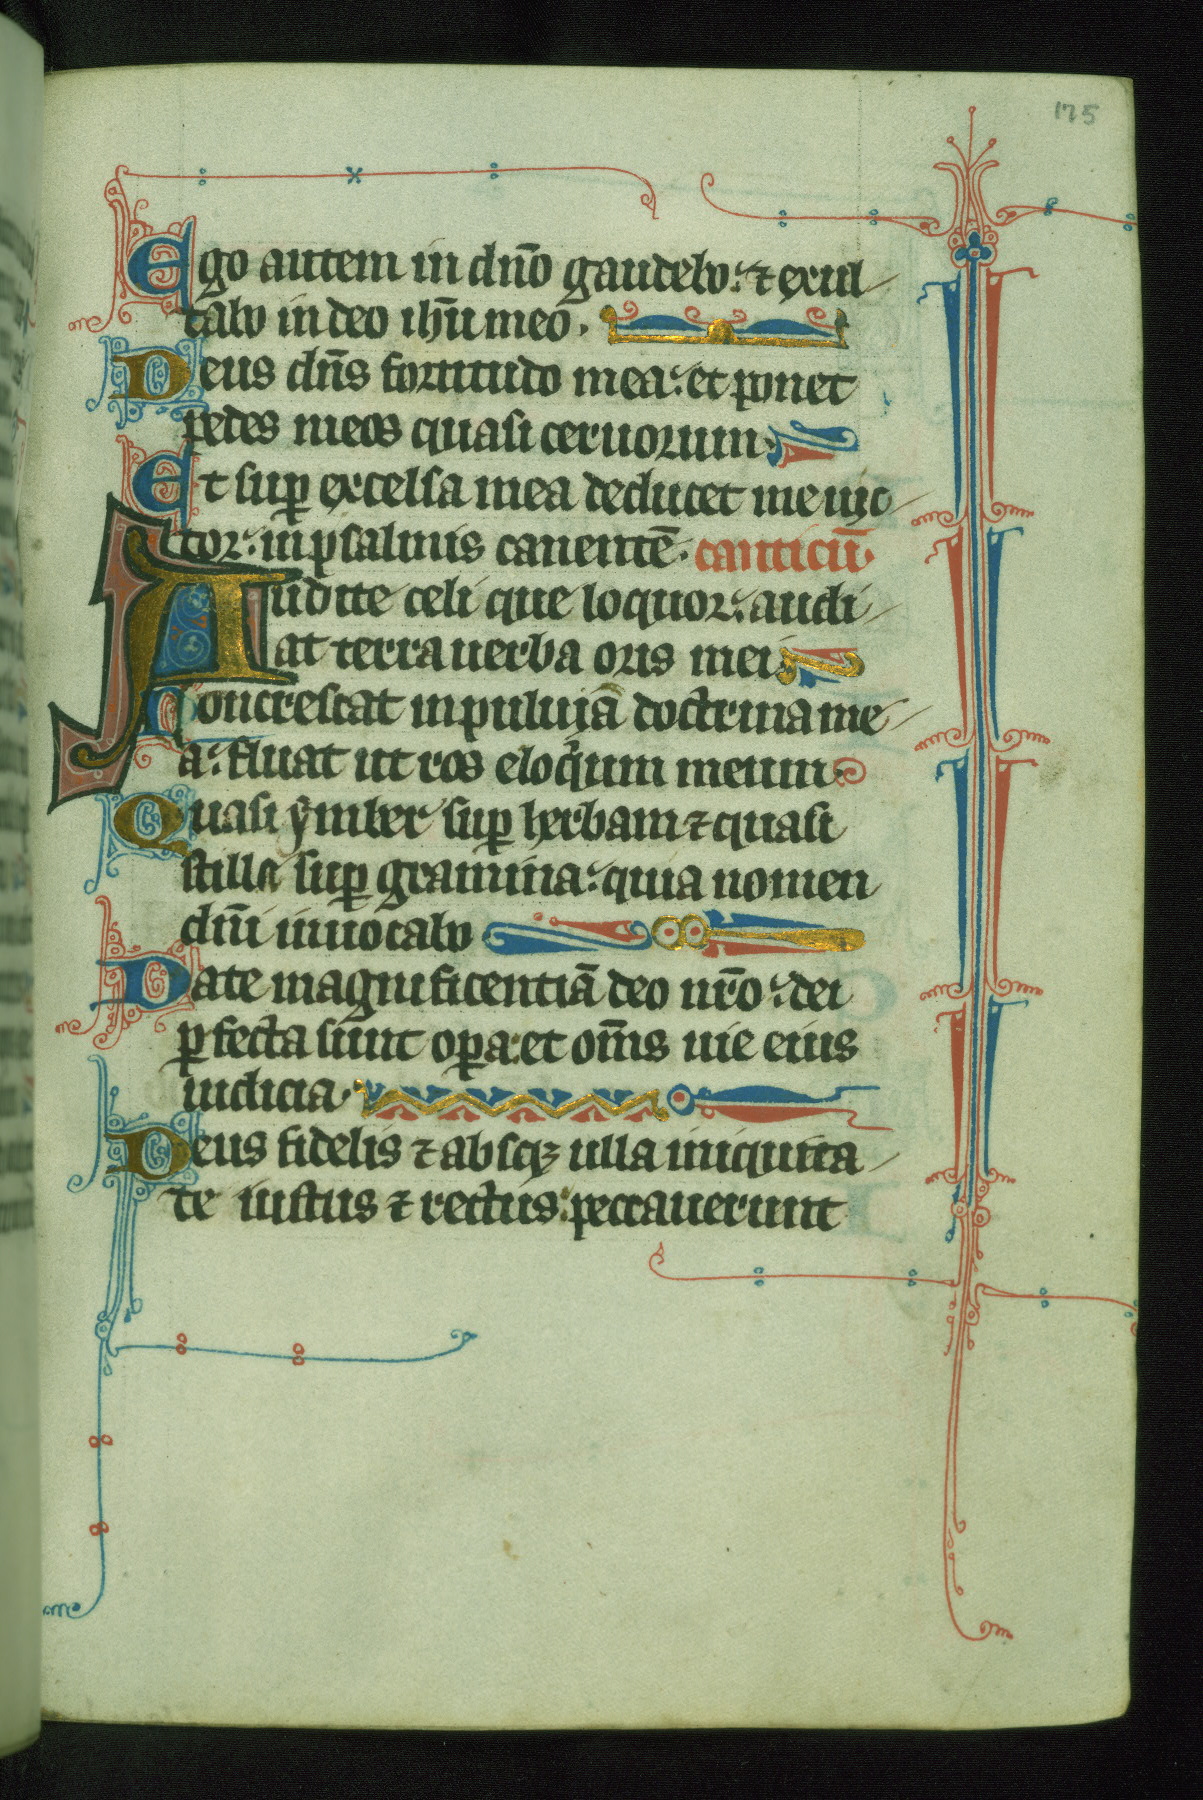 175
Ego autem in dn̄o gaudebo: ⁊ exul
tabo in deo ih̄u meo.
Deus dn̄s fortitudo mea: et ponet
pedes meos quasi ceruorum.
Et suꝑ excelsa mea deducet me uic
tor: in psalmis canentē. canticū.
Audite celi que loquor: audi
at terra uerba oris mei
Concrescat in pluuia doctrina me
a: fluat ut ros eloq̄ium meum.
Quasi ymber suꝑ herbam ⁊ quasi
stille suꝑ gramina: quia nomen
dn̄i inuocabo
Date magnificentiā deo nr̄o: dei
ꝑfecta sunt oꝑa: et om̄s uie eius
iudicia.
Deus fidelis ⁊ absqꝫ ulla iniquita
te iustus ⁊ rectus: peccauerunt